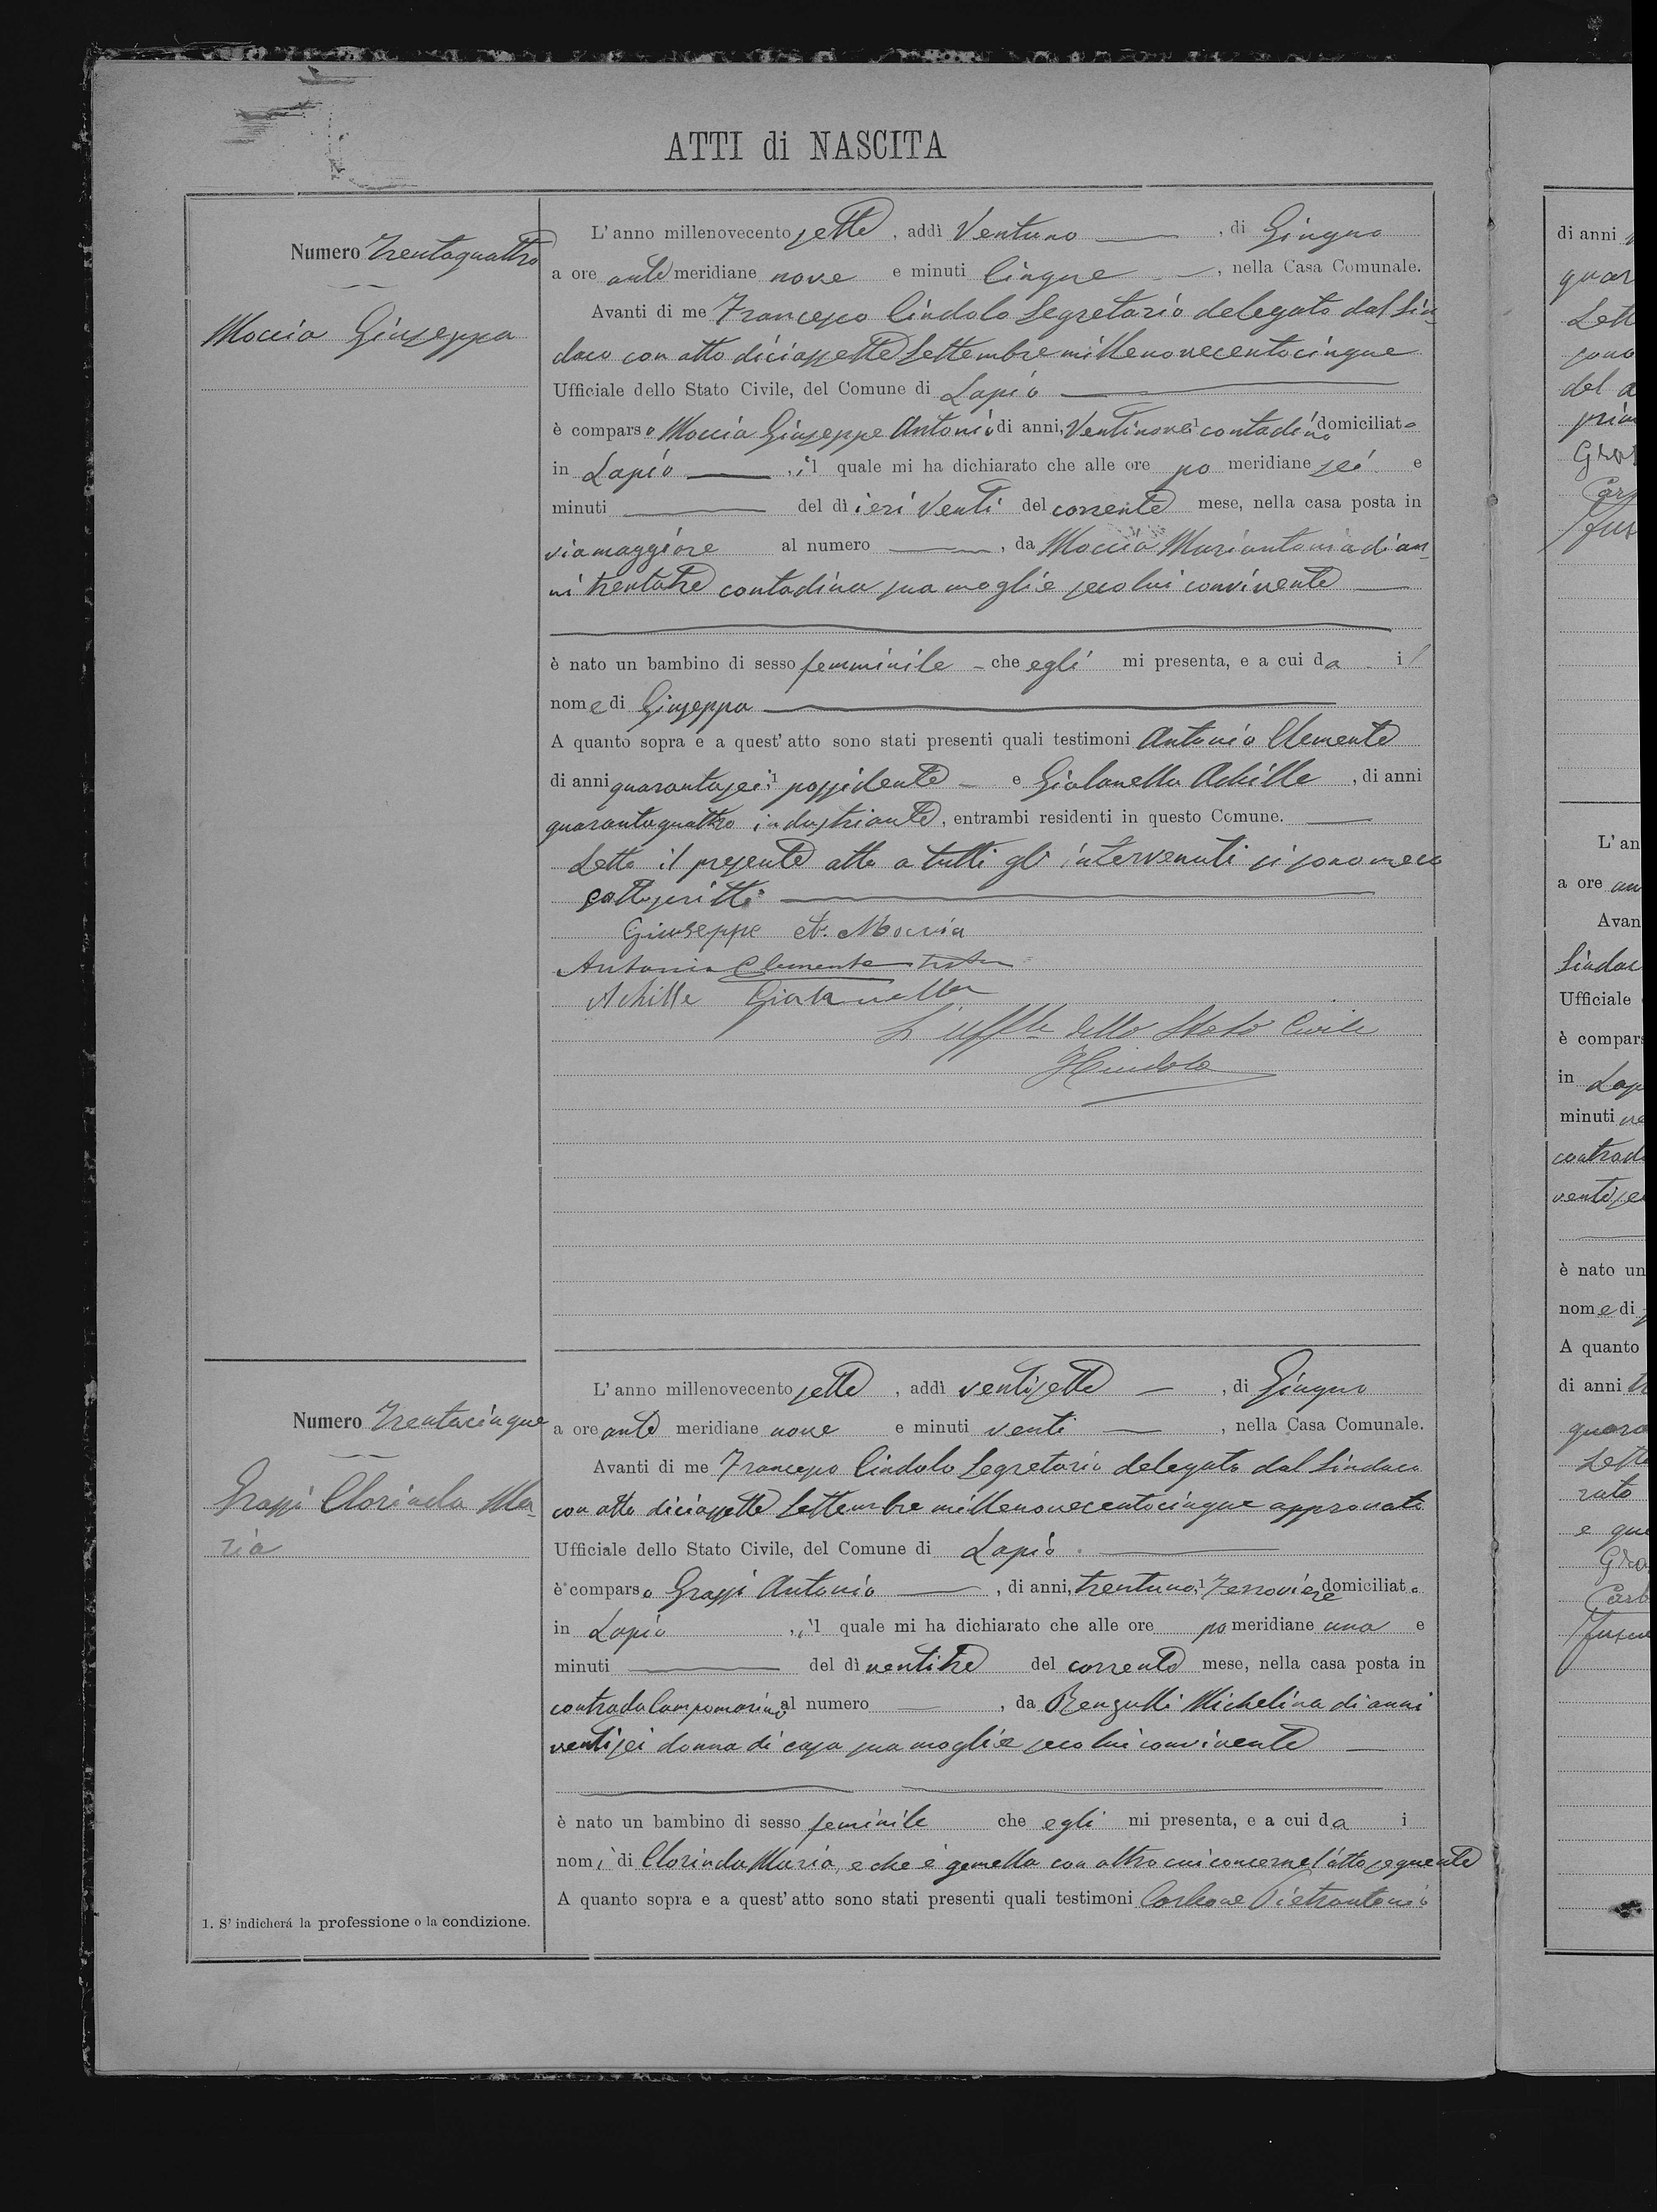 ATTI di NASCITA
Numero Trentaquattro
Moccia Giuseppa
L'anno millenovecento sette, addì Ventuno, di Giugno
a ore antemeridiane nove e minuti Cinque, nella Casa Comunale.
Avanti di me Francesco Cindolo Segretario delegato dal Sin-
daco con atto diciassette Settembre millenovecentocinque
Ufficiale dello Stato Civile, del Comune di Lapio
è comparso Moccia Giuseppe Antonio di anni, Ventinove contadino domiciliato
in Lapio, il quale mi ha dichiarato che alle ore pomeridiane sei e
minuti del dì ieri Venti del corrente mese, nella casa posta in
via maggiore al numero, da Moccia Mariantonia di an-
ni trentatre contadina sua moglie seco lui convivente
è nato un bambino di sesso femminile - che egli mi presenta, e a cui da il
nome di Giuseppa
A quanto sopra e a quest'atto sono stati presenti quali testimoni Antonio Clemente
di anni quarantasei possidente e Giolanella Achille, di anni
quarantaquattro industriante, entrambi residenti in questo Comune.
Letto il presente atto a tutti gl'intervenuti si sono meco
sottoscritti
Giuseppe A. Moccia
Antonio Clemente teste
Achille Giolanella
L'uff.le dello Stato Civile
F Cindolo
Numero Trentacinque
Grassi Clorinda Ma-
ria
L'anno millenovecento sette, addì ventisette, di Giugno
a ore ante meridiane nove e minuti venti, nella Casa Comunale.
Avanti di me Francesco Cindolo Segretario delegato dal Sindaco
con atto diciassette Settembre millenovecentocinque approvato
Ufficiale dello Stato Civile, del Comune di Lapio.
è comparso Grassi Antonio, di anni, trentuno, Ferroviere domiciliato
in Lapio, il quale mi ha dichiarato che alle ore pomeridiane una e
minuti del dì ventitre del corrente mese, nella casa posta in
contrada Campomarino al numero, da Renzulli Michelina di anni
ventisei donna di casa sua moglie seco lui convivente
è nato un bambino di sesso feminile che egli mi presenta, e a cui da i
nomi di Clorinda Maria, e che è gemella con altro cui concerne l'atto seguente
A quanto sopra e a quest'atto sono stati presenti quali testimoni Carbone Pietrantonio
1. S'indicherá la professione o la condizione.
di anni
quar
Lett
sono
del a
prim
Gras
Carb
L'an
a ore an
Avan
Sindac
Ufficiale
è compars
in Lapi
minuti ve
contrad
ventise
è nato un
nome di
A quanto
di anni tr
quara
Lett
rato
e que
Gra
Carb